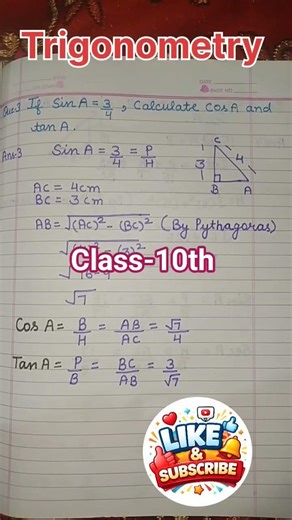 Trigonometry
DATE
Que.3 If Sin A = 3/4, Calculate Cos A and
tan A.
Ans-3 Sin A = 3/4 = P/H
C
3
4
B
A
AC = 4cm
BC = 3cm
AB = √(AC)² - (BC)² (By Pythagoras)
Class-10th
√7
Cos A = B/H = AB/AC = √7/4
Tan A = P/B = BC/AB = 3/√7
LIKE
&
SUBSCRIBE